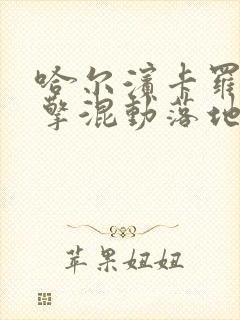 哈尔滨卡罗
擎混动落地
苹果妞妞